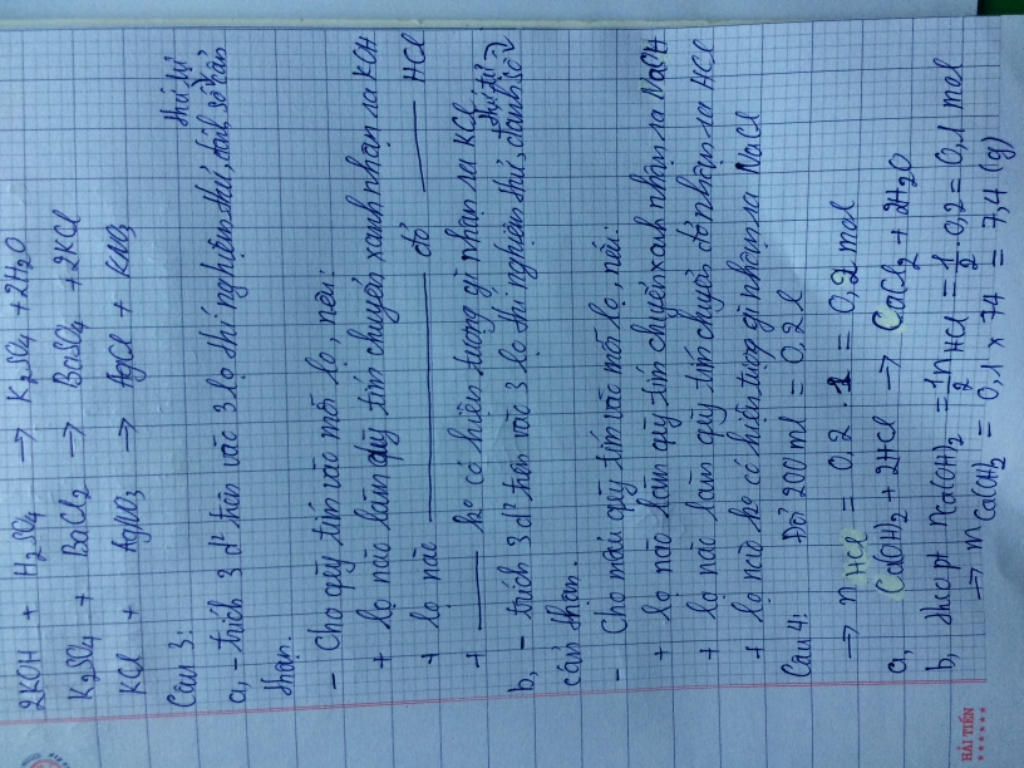 2KOH + H2SO4 → K2SO4 + 2H2O
K2SO4 + BaCl2 → BaSO4 + 2KCl
KCl + AgNO3 → AgCl + KNO3
Câu 3:
thứ tự
a, - trích 3 d² trên vào 3 lọ thí nghiệm thứ, đánh số cẩn
thận.
- Cho quỳ tím vào mỗi lọ, nếu:
+ lọ nào làm quỳ tím chuyển xanh nhận ra KOH
+ lọ nào ——— đỏ ——— HCl
+ ——— ko có hiện tượng gì nhận ra KCl
thứ tự
b, - trích 3 d² trên vào 3 lọ thí nghiệm thứ, đánh số
cẩn thận.
- Cho mẩu quỳ tím vào mỗi lọ, nếu:
+ lọ nào làm quỳ tím chuyển xanh nhận ra NaOH
+ lọ nào làm quỳ tím chuyển đỏ nhận ra HCl
+ lọ nào ko có hiện tượng gì nhận ra NaCl
Câu 4: Đổi 200 ml = 0,2 l
→ n HCl = 0,2 . 1 = 0,2 mol
a, Ca(OH)2 + 2HCl → CaCl2 + 2H2O
b, theo pt nCa(OH)2 = 1/2 nHCl = 1/2 . 0,2 = 0,1 mol
→ mCa(OH)2 = 0,1 x 74 = 7,4 (g)
HẢI TIẾN